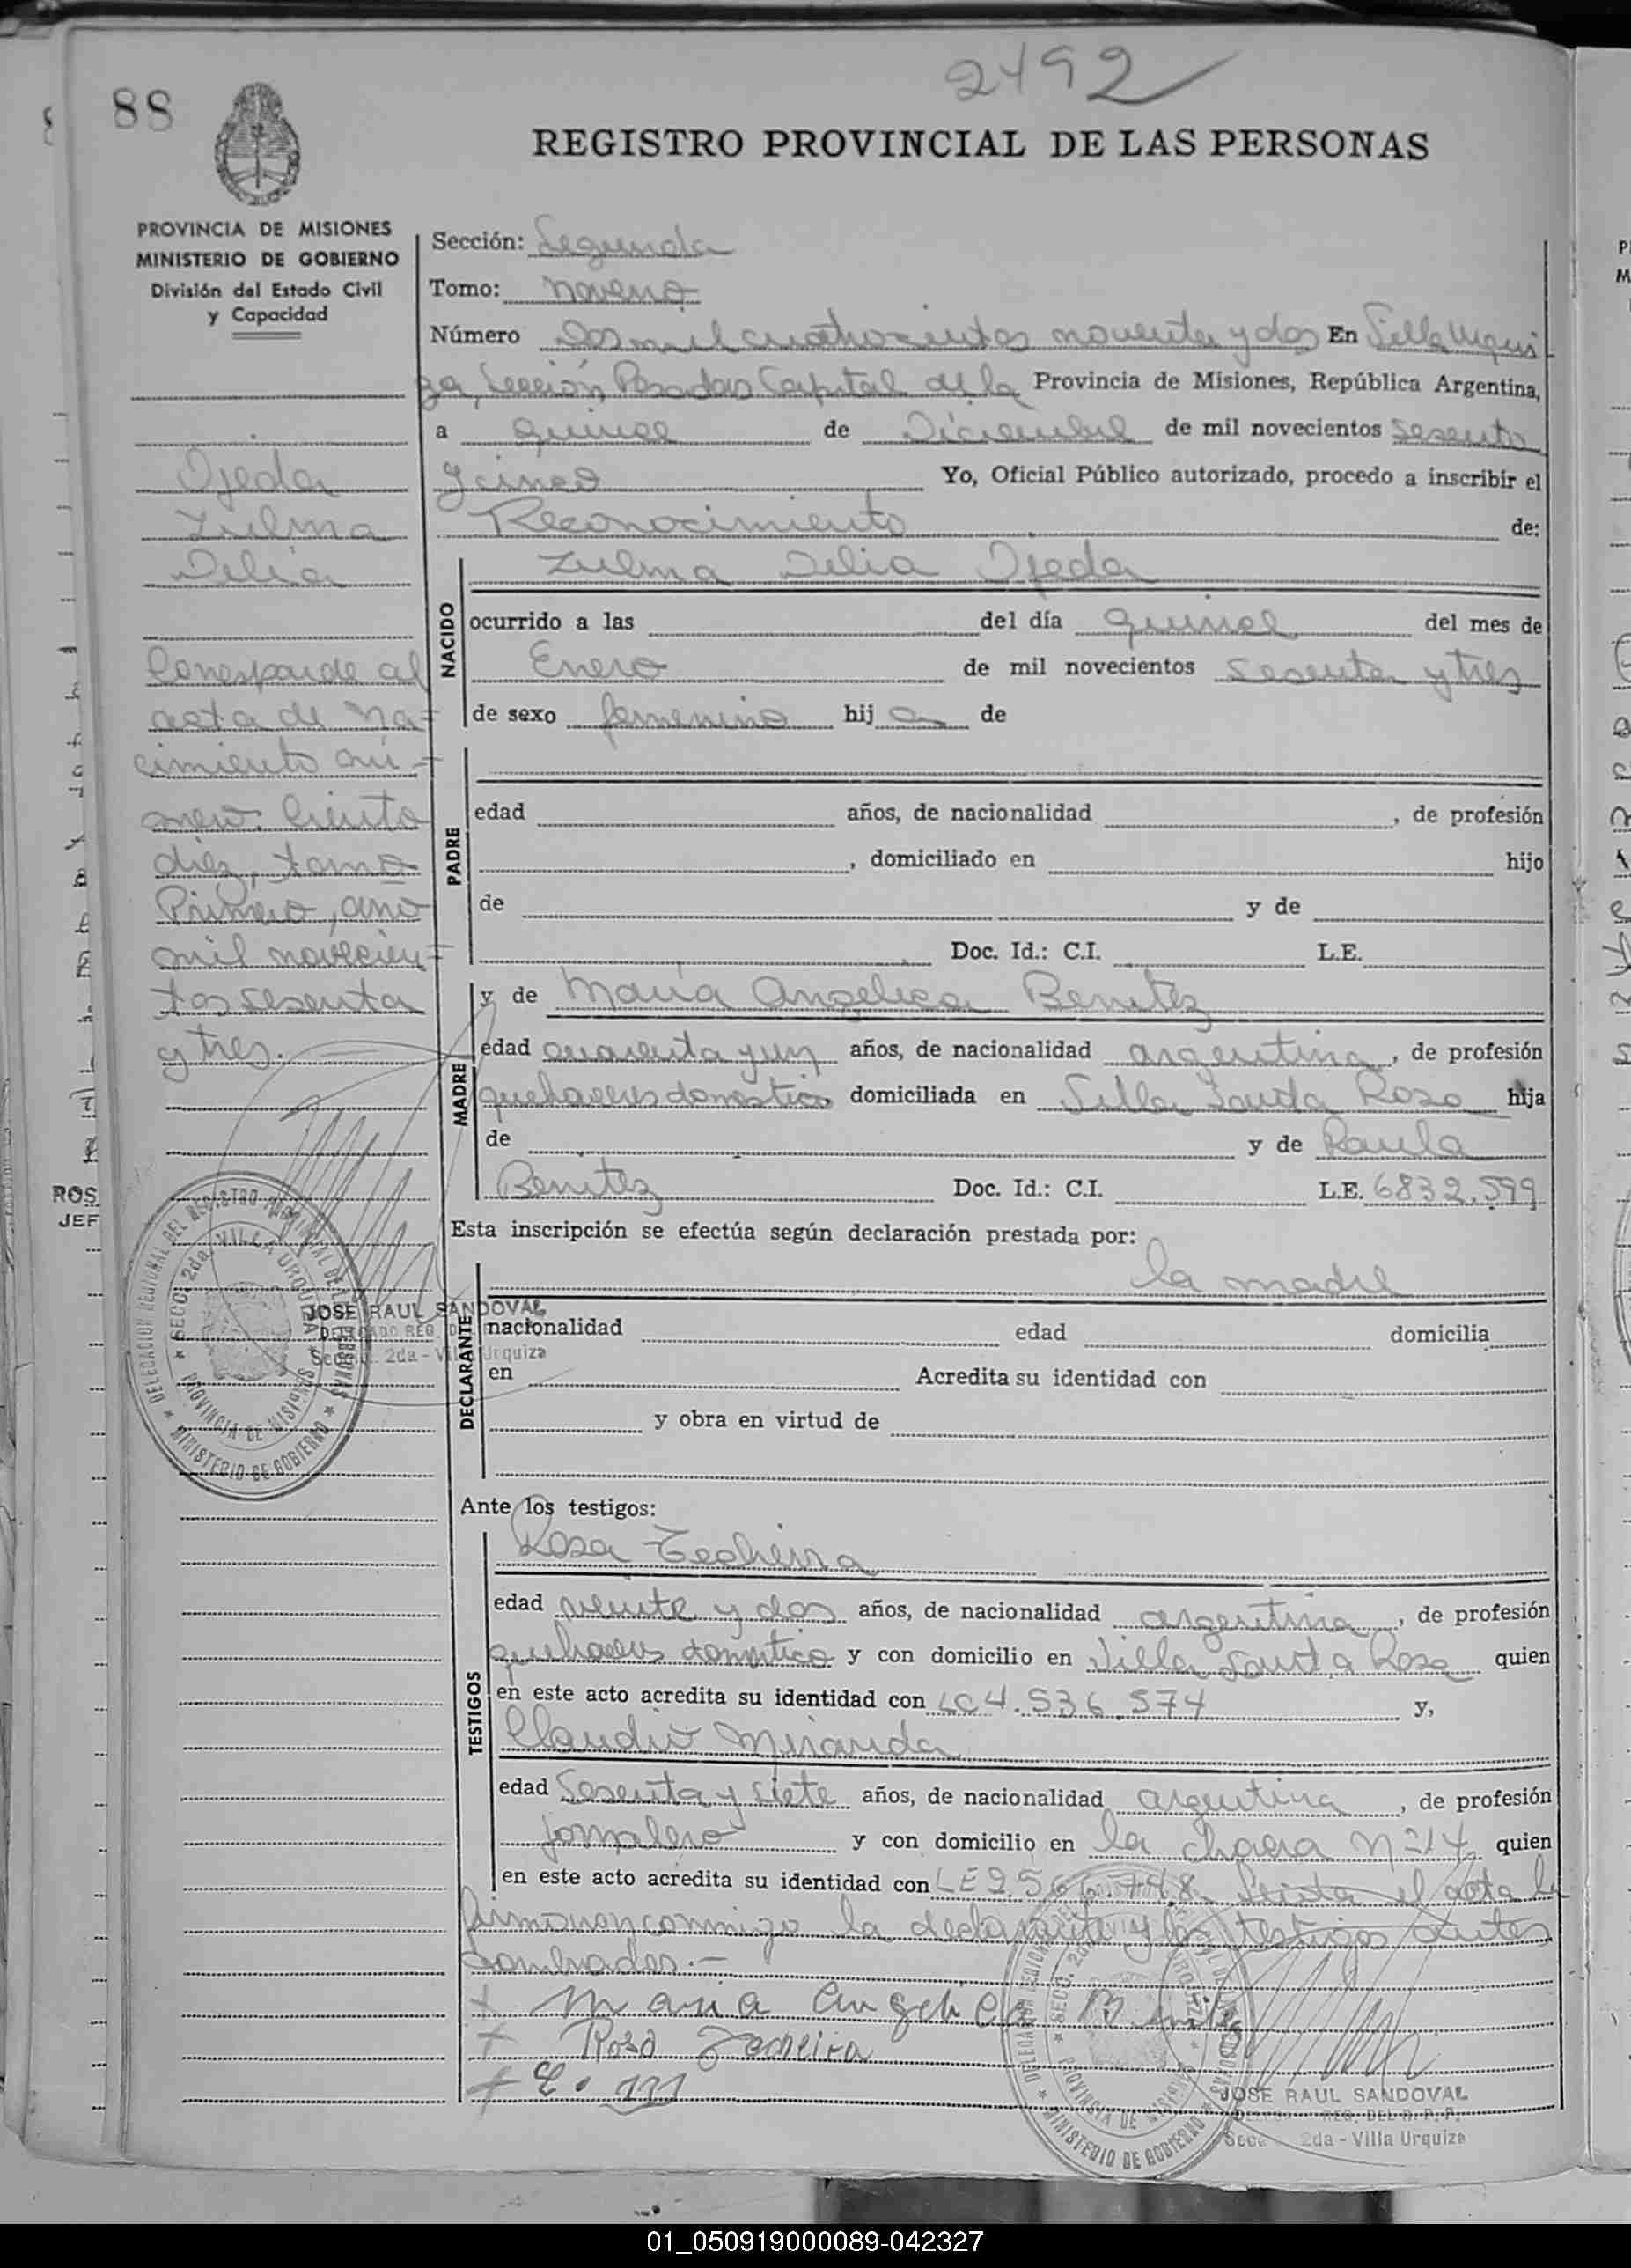 2492
88
REGISTRO PROVINCIAL DE LAS PERSONAS
PROVINCIA DE MISIONES
MINISTERIO DE GOBIERNO
División del Estado Civil
y Capacidad
Ojeda
Zulma
Delia
Corresponde al
acta de na=
cimiento nú-
mero Ciento
diez, tomo
Primero, año
mil novecien=
tos sesenta
y tres.
Sección: Segunda
Tomo: noveno
Número Dos mil cuatrocientos noventa y dos En Villa Urqui
za, Sección Posadas Capital de la Provincia de Misiones, República Argentina,
a quince de Diciembre de mil novecientos sesenta
y cinco Yo, Oficial Público autorizado, procedo a inscribir el
Reconocimiento de:
NACIDO
Zulma Delia Ojeda
ocurrido a las del día quince del mes de
Enero de mil novecientos sesenta y tres
de sexo femenino hija de
PADRE
edad años, de nacionalidad , de profesión
, domiciliado en hijo
de y de
Doc. Id.: C.I. L.E.
MADRE
y de María Angelica Benitez
edad cuarenta y un años, de nacionalidad argentina, de profesión
quehaceres domestico domiciliada en Villa Santa Rosa hija
de y de Paula
Benitez Doc. Id.: C.I. L.E. 6832.599
Esta inscripción se efectúa según declaración prestada por:
la madre
DECLARANTE
nacionalidad edad domicilia
en Acredita su identidad con
y obra en virtud de
JOSE RAUL SANDOVAL
Secc. 2da - Villa Urquiza
DELEGACION REGIONAL DEL REGISTRO PROVINCIAL DE LAS PERSONAS
SECC. 2da. VILLA URQUIZA
PROVINCIA DE MISIONES
MINISTERIO DE GOBIERNO
Ante los testigos:
TESTIGOS
Rosa
edad veinte y dos años, de nacionalidad argentina, de profesión
quehaceres domestico y con domicilio en Villa Santa Rosa quien
en este acto acredita su identidad con LC 4.536.574 y,
Claudio Miranda
edad Sesenta y siete años, de nacionalidad argentina, de profesión
jornalero y con domicilio en la chacra Nº 14 quien
en este acto acredita su identidad con LE 2.566.748. Leida el acta la
firmaron conmigo la declarante y los testigos antes
nombrados.-
+ Maria Angelica Benitez
+ Rosa
+
JOSE RAUL SANDOVAL
DEL R. P. P.
Secc. 2da - Villa Urquiza
ROS
JEF
01_050919000089-042327